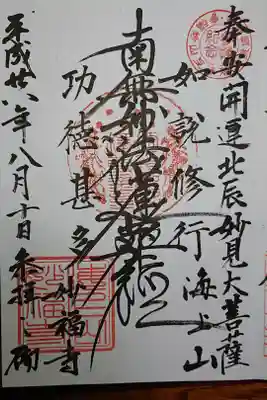 奉安開運北辰妙見大菩薩
如説修行 海上山
南無妙法蓮華経
功徳甚多 妙福寺
平成廿八年八月十日 参拝